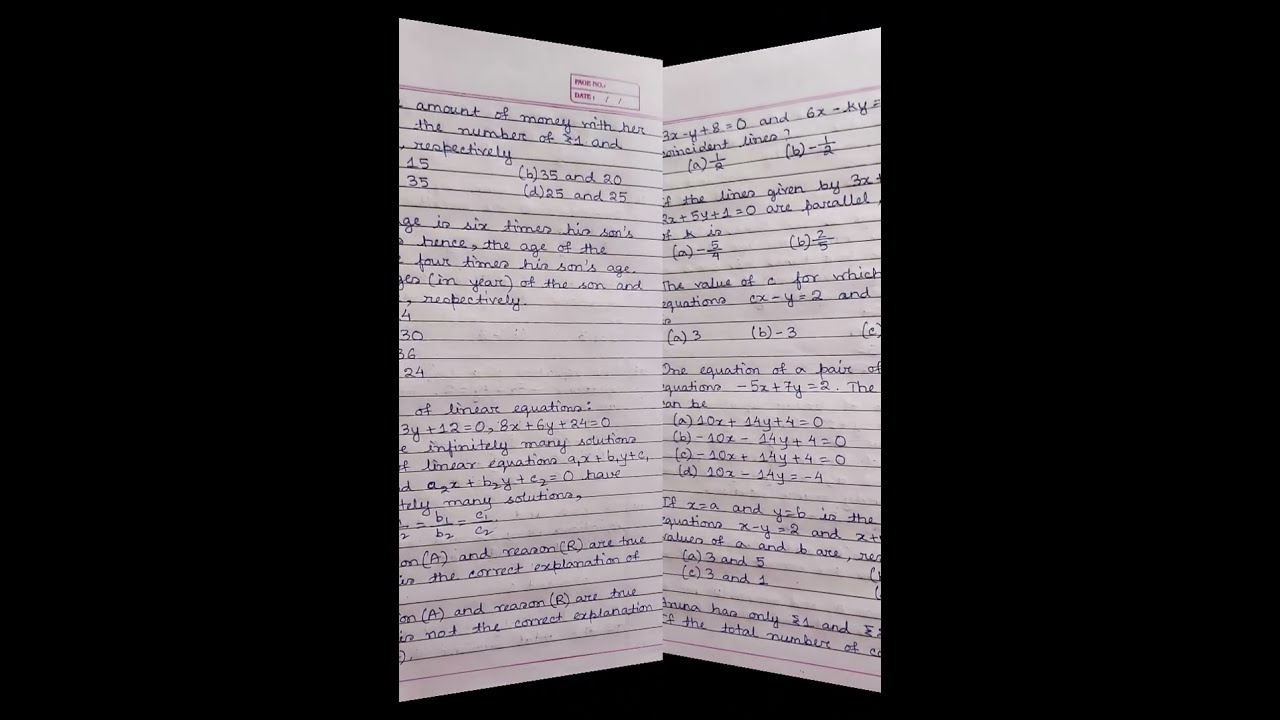 PAGE NO.:
DATE: / /
amount of money with her
the number of ₹1 and
, respectively
15 (b) 35 and 20
35 (d) 25 and 25
ge is six times his son's
hence, the age of the
four times his son's age.
ges (in year) of the son and
, respectively.
4
30
36
24
of linear equations:
3y+12=0, 8x+6y+24=0
e infinitely many solutions
of linear equations a₁x+b₁y+c₁
d a₂x+b₂y+c₂=0 have
tely many solutions,
2 = b₁/b₂ = c₁/c₂
on (A) and reason (R) are true
is the correct explanation of
on (A) and reason (R) are true
is not the correct explanation
).
3x-y+8=0 and 6x-ky=
oincident lines?
(a) 1/2 (b) -1/2
if the lines given by 3x+
2x+5y+1=0 are parallel,
of k is
(a) -5/4 (b) 2/5
The value of c for which
equations cx-y=2 and
(a) 3 (b) -3 (c)
One equation of a pair of
equations -5x+7y=2. The
an be
(a) 10x+14y+4=0
(b) -10x-14y+4=0
(c) -10x+14y+4=0
(d) 10x-14y=-4
If x=a and y=b is the
equations x-y=2 and x+
values of a and b are, res
(a) 3 and 5
(c) 3 and 1
Aruna has only ₹1 and ₹2
If the total number of co